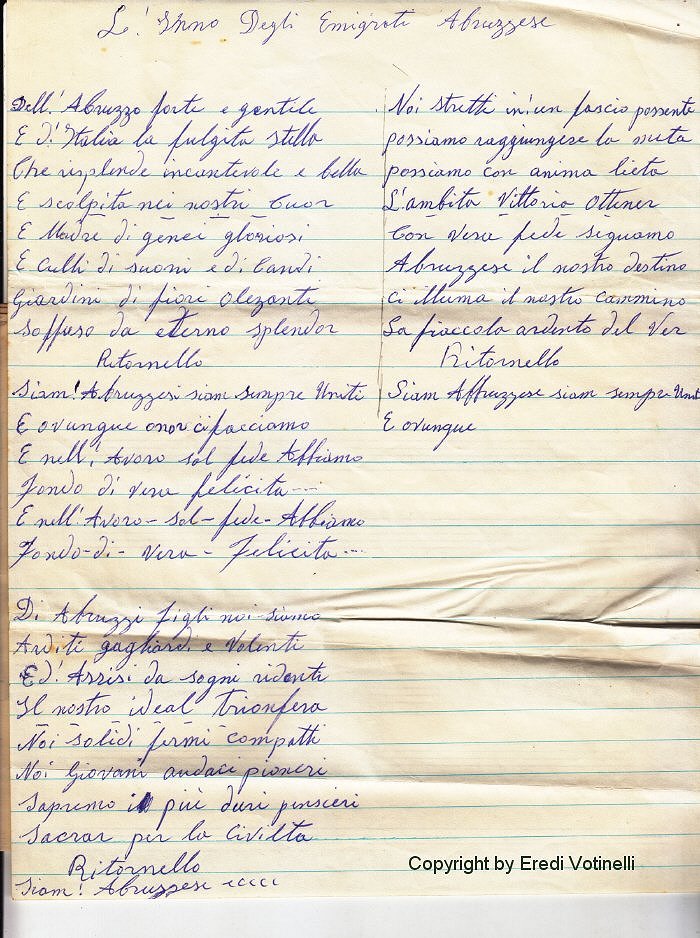 Le! Inno Degli Emigrati Abruzzese
Dell! Abruzzo forte e gentile
E d! Italia la fulgita stella
Che risplende incantevole e bella
E scolpita nei nostri Cuor
E Madre di genei gloriosi
E Culli di suoni e di Canti
Giardini di fiori olezanti
Soffuso da eterno splendor
Ritornello
Siam! Abruzzesi siam sempre Uniti
E ovunque onor ci facciamo
E nell! Avoro sol fede Abbiamo
Fondo di vera felicita ----
E nell! Avoro - sol - fede - Abbiamo
Fondo - di - Vera - Felicita ---
Di Abruzzi figli noi siamo
Arditi gagliardi e Volenti
E d! Arrisi da sogni ridenti
Il nostro ideal trionfera
Noi solidi fermi compatti
Noi Giovani audaci pioneri
Sapremo i più duri pensieri
Sacrar per la Civilta
Ritornello
Siam! Abruzzese cccc
Noi stretti in! un fascio possente
possiamo raggiungese la meta
possiamo con anima lieta
L!ambita Vittoria Ottener
Con Vera fede seguamo
Abruzzese il nostro destino
Ci illuma il nostro cammino
La fiaccola ardente del Ver
Ritornello
Siam Abbruzzese siam sempre Unit
E ovungue
Copyright by Eredi Votinelli